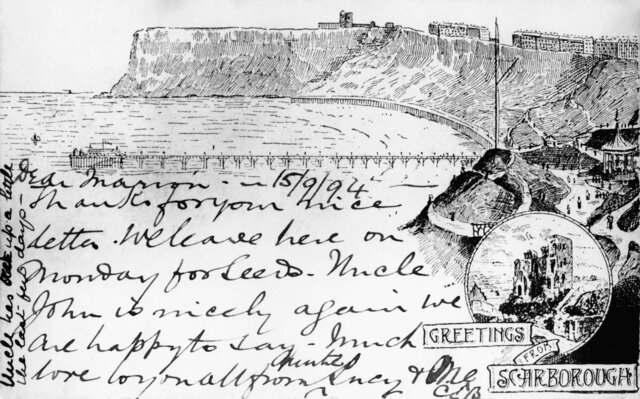 Dear Marion - 15/9/94 -
Thanks for your nice
letter. We leave here on
Monday for Leeds - Uncle
John is nicely again we
are happy to say - Much
love to you all from Auntie Lucy & Me
C E B
Uncle has been up a little
the last few days -
GREETINGS
FROM
SCARBOROUGH